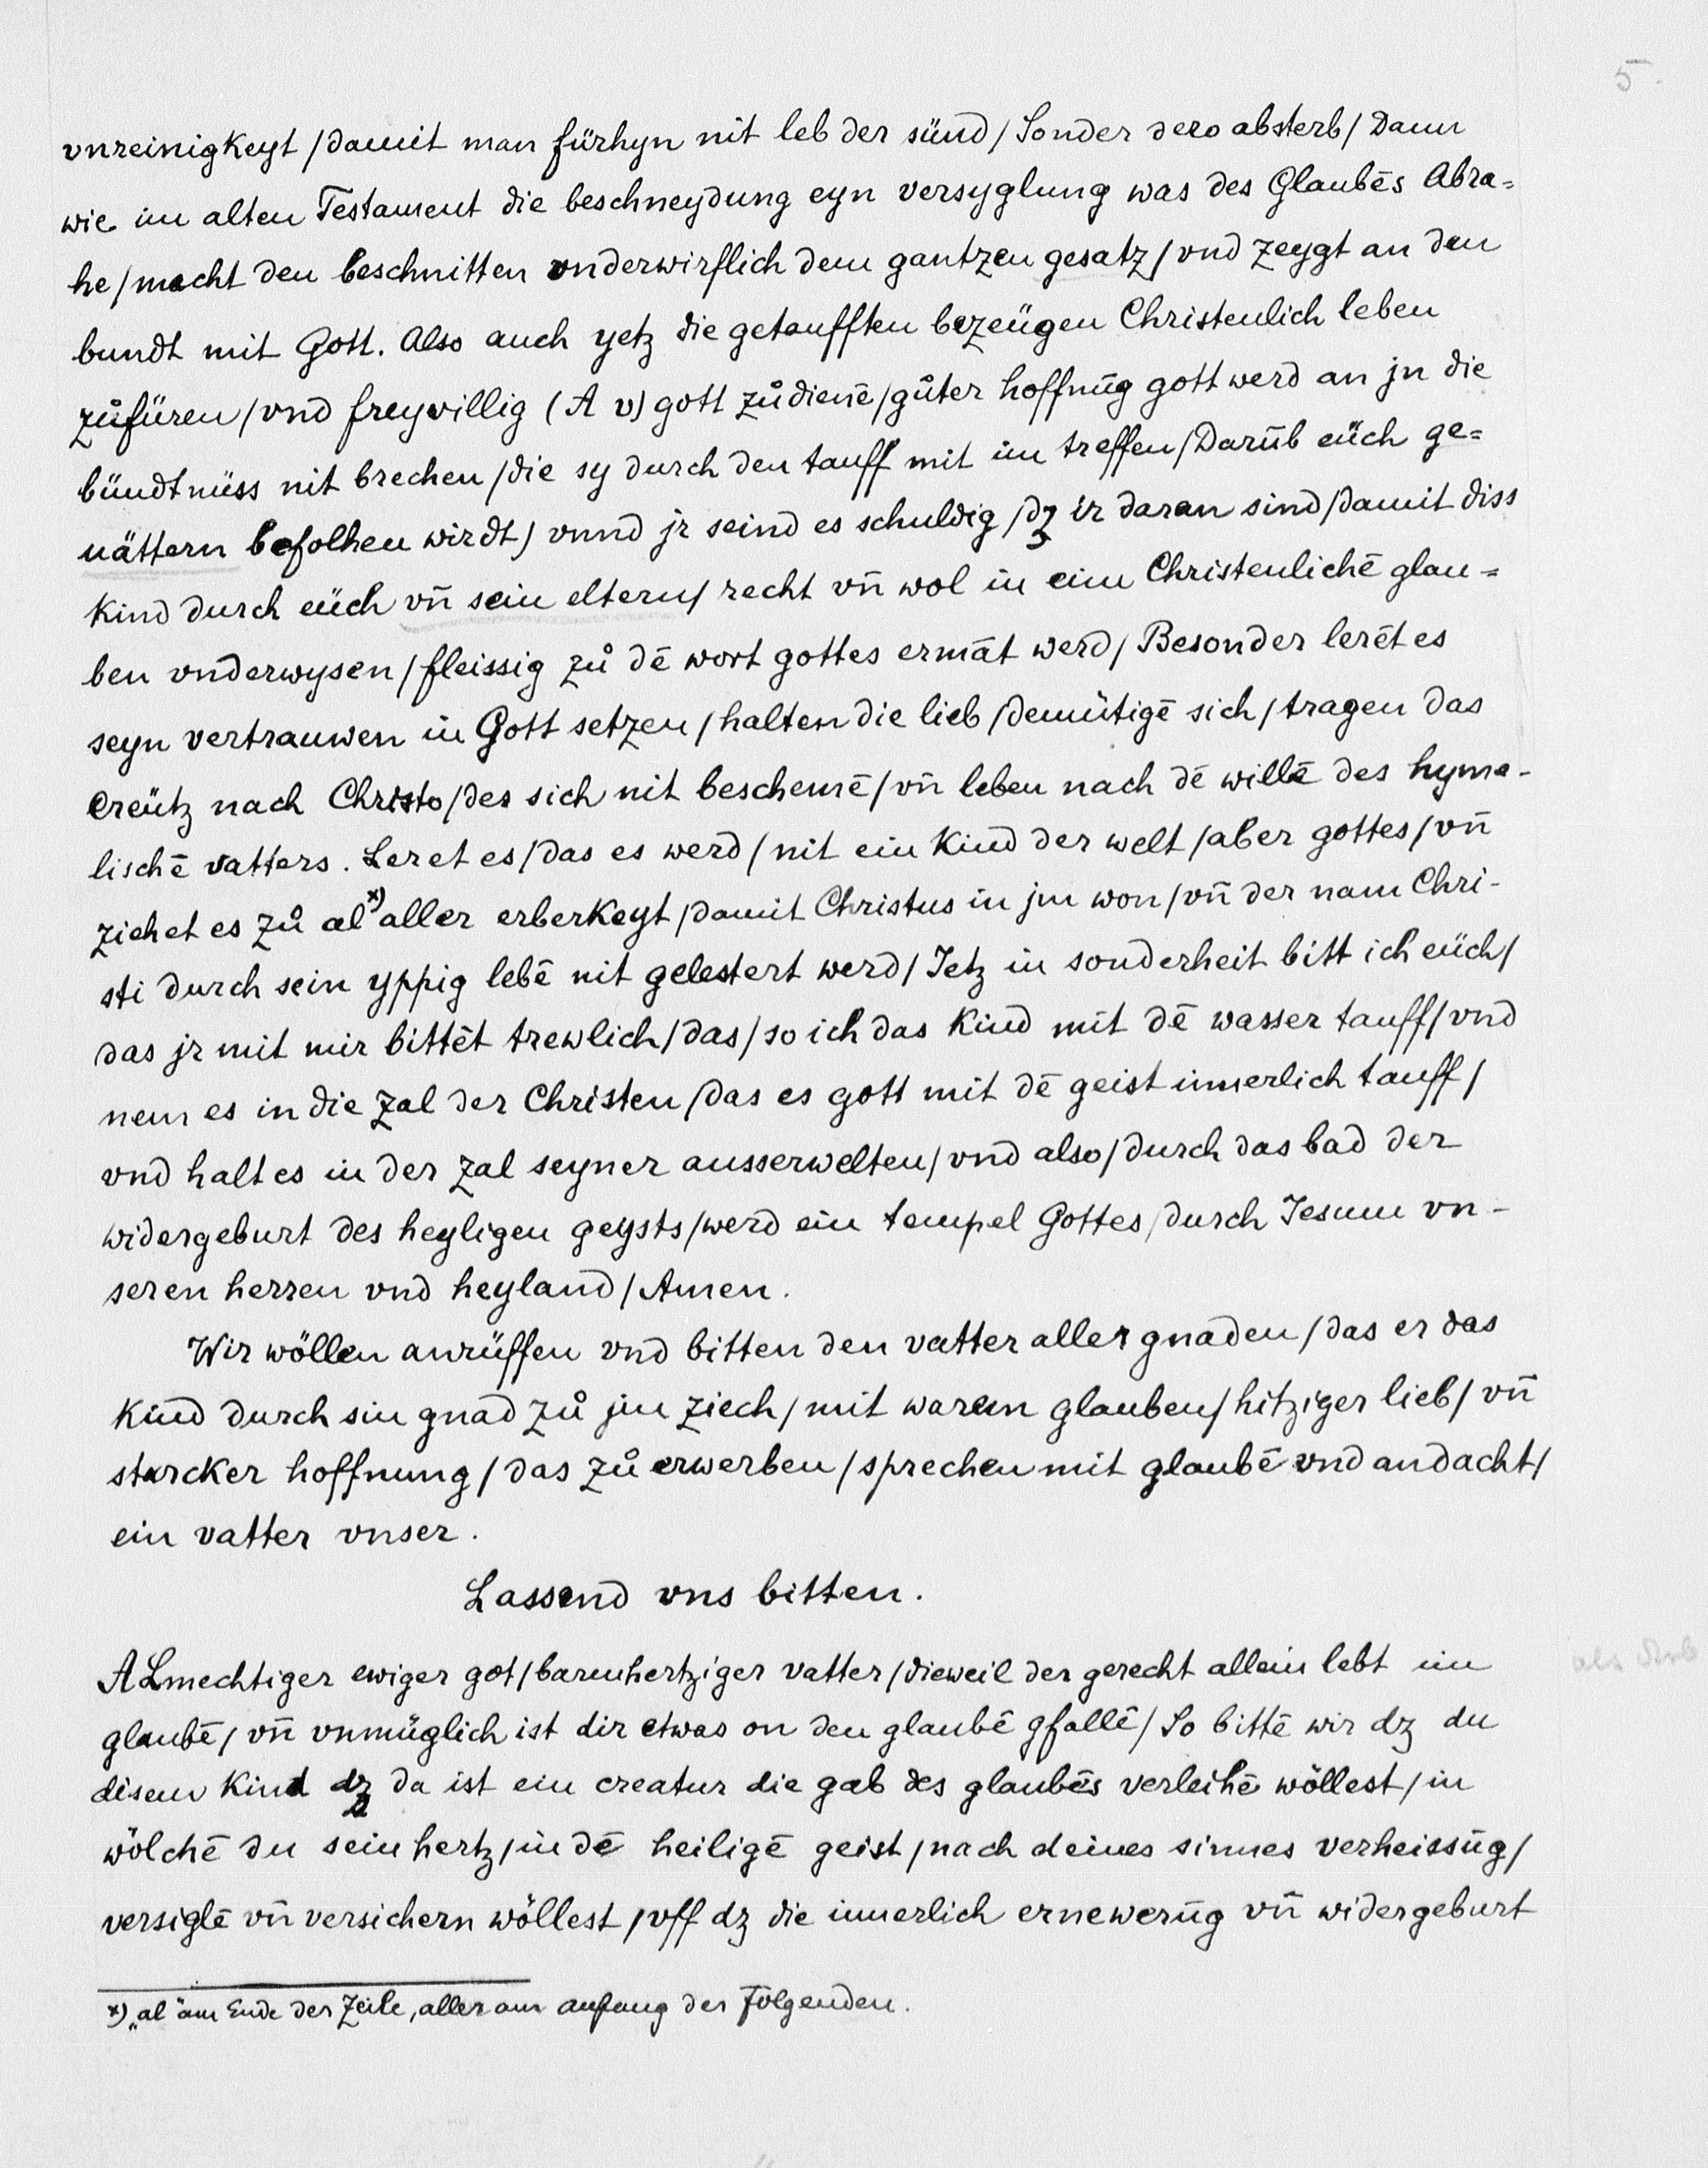 5.
vnreinigkeyt / damit man fürhyn nit leb der sünd / Sonder dero absterb / Dann
wie im alten Testament die beschneydung eyn versyglung was des Glaubēs Abra=
he / macht den beschnitten vnderwirflich dem gantzen gesatz / vnd zeygt an den
bundt mit Gott. Also auch yetz die getaufften bezeügen Christenlich leben
zůfüren / vnd freywillig (A v) gott zůdienē / gůter hoffnūg gott werd an jn die
bündtnüss nit brechen / die sy durch den tauff mit im treffen / Darūb eüch ge=
uättern befolhen wirdt / vnnd jr seind es schuldig / dz ir daran sind / damit diss
kind durch eüch vn̄ sein eltern / recht vn̄ wol in eim Christenlichē glau=
ben vnderwysen / fleissig zů dē wort gottes ermāt werd / Besonder lerēt es
seyn vertrauwen in Gott setzen / halten die lieb / demütigē sich / tragen das
Creütz nach Christo / des sich nit beschemē / vn̄ leben nach dē willē des hyme-
lischē vatters. Leret es / das es werd / nit ein Kind der welt / aber gottes / vn̄
ziehet es zů al x) aller erberkeyt / damit Christus in jm won / vn̄ der nam Chri-
sti durch sein yppig lebē nit gelestert werd / Jetz in sonderheit bitt ich eüch /
das jr mit mir bittēt trewlich / das / so ich das Kind mit dē wasser tauff / vnd
nem es in die zal der Christen / das es gott mit dē geist innerlich tauff /
vnd halt es in der zal seyner ausserwelten / vnd also / durch das bad der
widergeburt des heyligen geysts / werd ein tempel Gottes / durch Jesum vn-
seren herren vnd heyland / Amen.
Wir wöllen anrüffen vnd bitten den vatter aller gnaden / das er das
Kind durch sin gnad zů jm ziech / mit warem glauben / hitziger lieb / vn̄
starcker hoffnung / das zů erwerben / sprechen mit glaubē vnd andacht /
ein vatter vnser.
Lassend vns bitten.
ALmechtiger ewiger got / barmhertziger vatter / dieweil der gerecht allein lebt im
glaubē / vn̄ vnmüglich ist dir etwas on den glaubē gfallē / So bittē wir dz du
disem Kind dz da ist ein creatur die gab des glaubēs verleihē wöllest / in
wölchē du sein hertz / in dē heiligē geist / nach deines sinnes verheissūg /
versiglē vn̄ versichern wöllest / vff dz die innerlich ernewerūg vn̄ widergeburt
x) „al" am Ende der Zeile, aller am anfang der Folgenden.